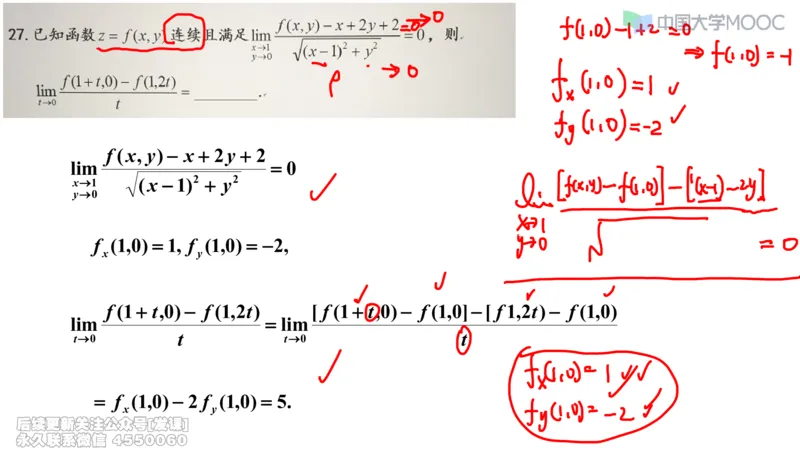 27. 已知函数 z = f(x, y) 连续且满足 lim_{x→1, y→0} (f(x, y) − x + 2y + 2) / √((x−1)² + y²) = 0，则
lim_{t→0} (f(1+t,0) − f(1,2t)) / t = ________.
=0→0
→0
ρ
中国大学MOOC
f(1,0)-1+2=0
⇒ f(1,0)=-1
fx(1,0)=1 ✓
fy(1,0)=-2 ✓
lim_{x→1, y→0} (f(x, y) − x + 2y + 2) / √((x−1)² + y²) = 0 ✓
lim_{x→1, y→0} ([f(x,y)-f(1,0)]-[1(x-1)-2y]) / √ =0
f_x(1,0) = 1, f_y(1,0) = −2,
lim_{t→0} (f(1+t,0) − f(1,2t)) / t = lim_{t→0} ([f(1+t,0) − f(1,0] − [f1,2t) − f(1,0)) / t
= f_x(1,0) − 2f_y(1,0) = 5. ✓
fx(1,0)=1 ✓✓
fy(1,0)=-2 ✓
后续更新关注公众号[发课]
永久联系微信 4550060